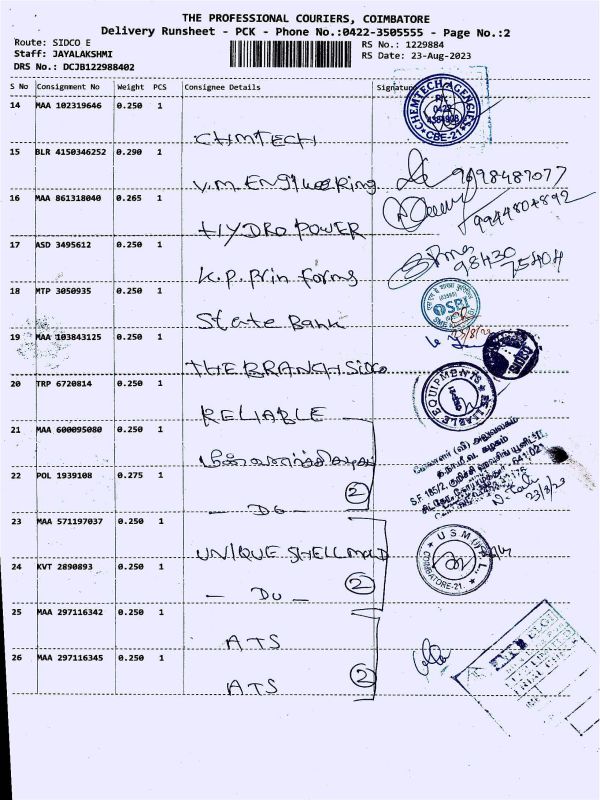 THE PROFESSIONAL COURIERS, COIMBATORE
Delivery Runsheet - PCK - Phone No.:0422-3505555 - Page No.:2
Route: SIDCO E
RS No.: 1229884
Staff: JAYALAKSHMI
RS Date: 23-Aug-2023
DRS No.: DCJB122988402
S No Consignment No Weight PCS Consignee Details Signature
14 MAA 102319646 0.250 1
CHEMTECH AGENCIE
CBE-21
CHMTECH
15 BLR 4150346252 0.290 1
V.M. ENgineering
16 MAA 861318040 0.265 1
HYDRO POWER
17 ASD 3495612 0.250 1
98430
75404
K.P. Prin forms
18 MTP 3050935 0.250 1
SBI
State Bank
19 MAA 103843125 0.250 1
THE BRANCH SIDCO
20 TRP 6720814 0.250 1
RELIABLE EQUIPMENTS
RELIABLE
21 MAA 600095080 0.250 1
22 POL 1939108 0.275 1
2
23/8/23
- Do -
23 MAA 571197037 0.250 1
UNIQUE SHELL MOLD
COIMBATORE-21
24 KVT 2890893 0.250 1
2
- Do -
25 MAA 297116342 0.250 1
ATS
26 MAA 297116345 0.250 1
2
ATS